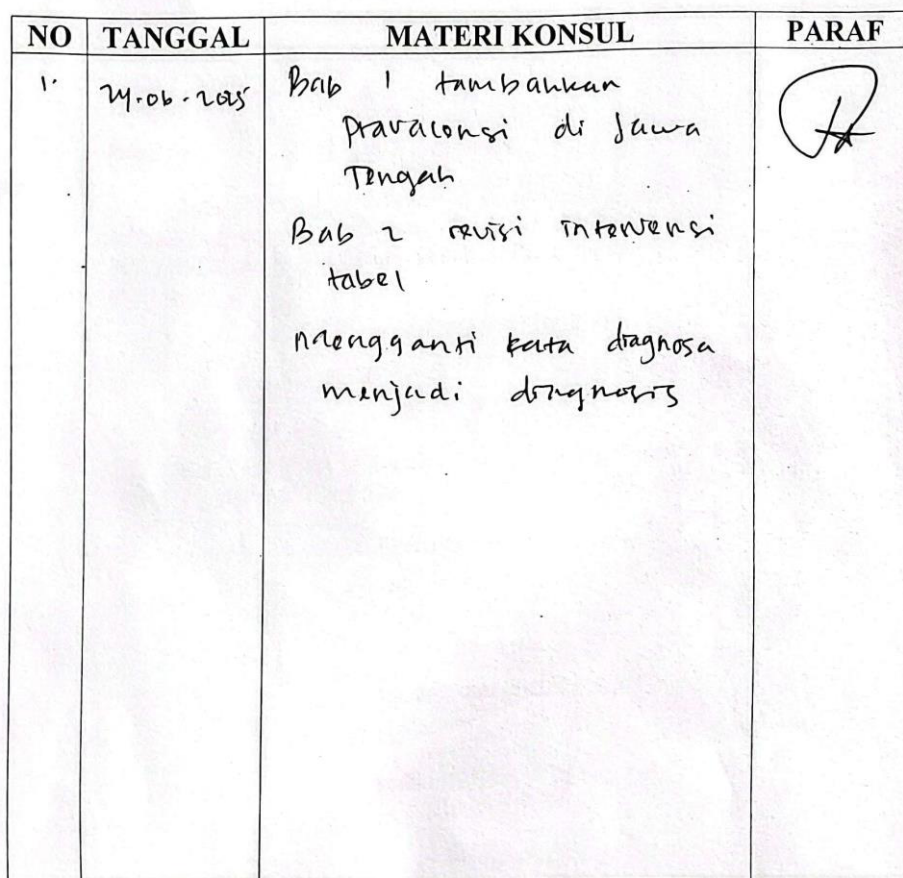 NO TANGGAL MATERI KONSUL PARAF
1. 24.06.2025 Bab 1 tambahkan
pravalensi di Jawa
Tengah
Bab 2 revisi intervensi
tabel
Mengganti kata diagnosa
menjadi diagnosis